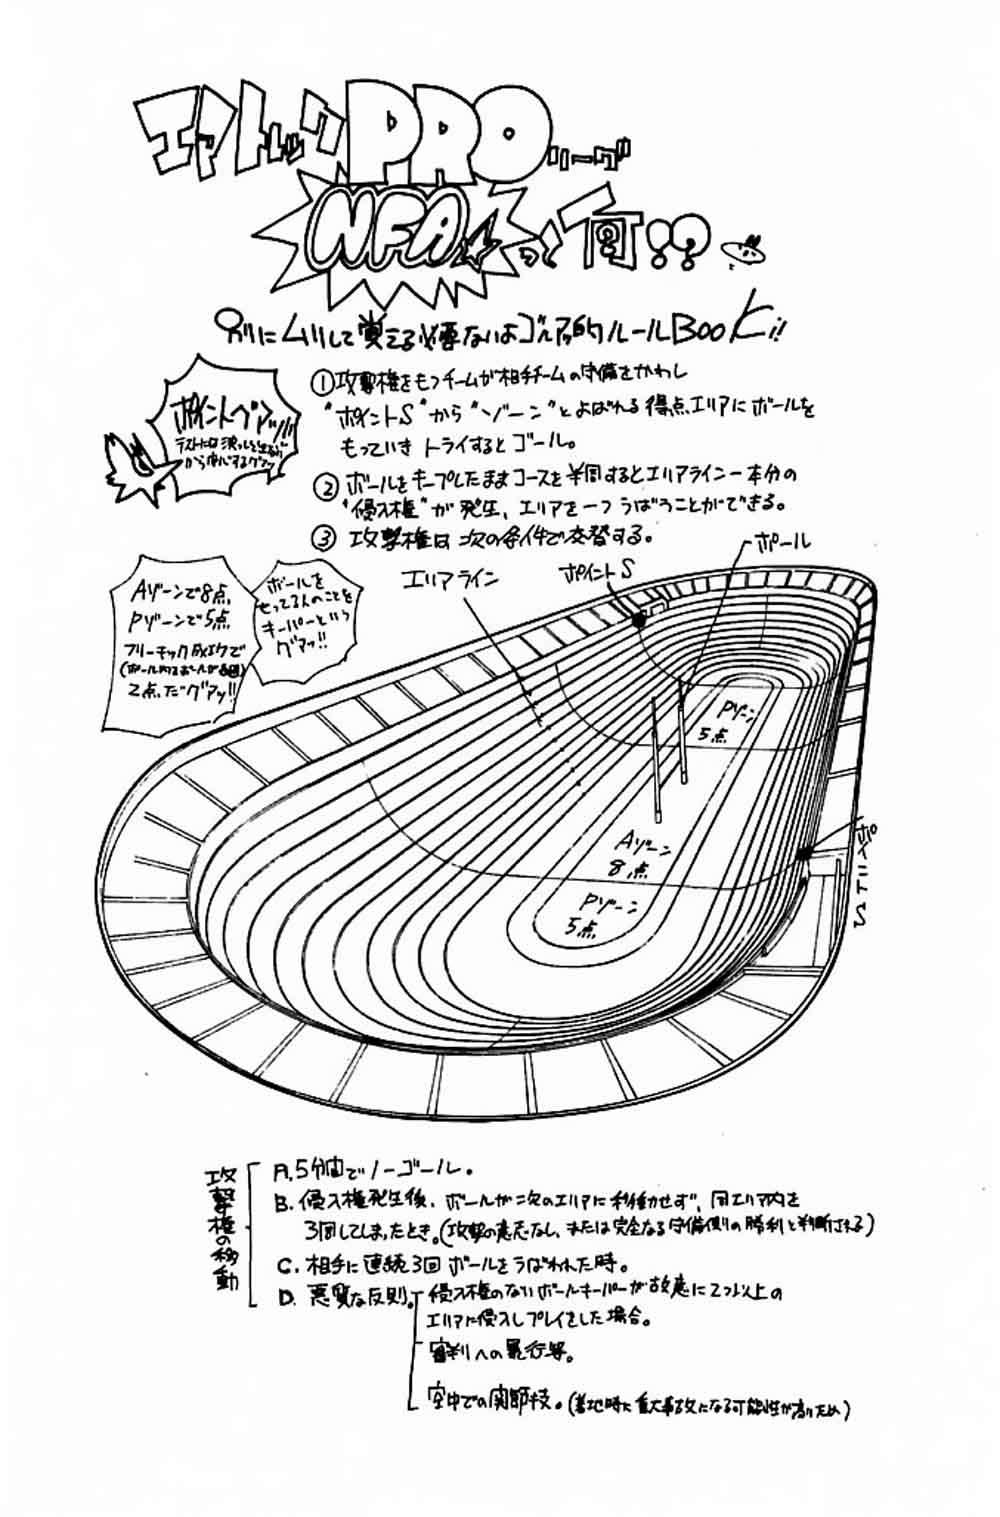 エアトレックPROリーグ
NFA☆って何!?
別にムリして覚える必要ないよゴルァ的ルールBooKi!!
①攻撃権をもつチームが相手チームの守備をかわし
"ポイントS"から"ゾーン"とよばれる得点エリアにボールを
もっていきトライするとゴール。
ポイントグアッ!!
テストには決して出ない
から安心するグアッ
②ボールをキープしたままコースを半周するとエリアライン一本分の
"侵入権"が発生、エリアを一つうばうことができる。
③攻撃権は次の条件で交替する。
エリアライン
ポイントS
ポール
Aゾーンで8点、
Pゾーンで5点
フリーキック成功で
2点だグアッ!!
ボールを
もってる人のことを
キーパーという
グアッ!!
Pゾーン
5点
Aゾーン
8点
Pゾーン
5点
ポイントS
攻撃権の移動
A. 5分間でノーゴール。
B. 侵入権発生後、ボールが次のエリアに移動せず、同エリア内を
3回してしまったとき。(攻撃の意志なし、または完全なる守備側の勝利と判断される)
C. 相手に連続3回ボールをうばわれた時。
D. 悪質な反則。
侵入権のないボールキーパーが故意に2つ以上の
エリアに侵入しプレイをした場合。
審判への暴行等。
空中での関節技。(着地時に重大事故になる可能性が高いため)